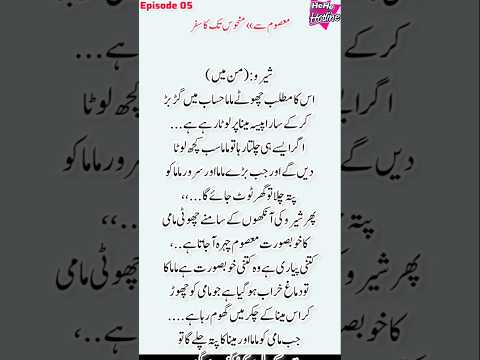 Episode 05
HeHe
Hotline
معصوم سے »» منحوس تک کا سفر
شیرو: (من میں)
اس کا مطلب چھوٹے ماما حساب میں گڑبڑ
کر کے سارا پیسہ مینا پر لوٹا رہے ہے...
اگر ایسے ہی چلتا رہا تو ماما سب کچھ لوٹا
دیں گے اور جب بڑے ماما اور سرور ماما کو
پتہ چلا تو گھر ٹوٹ جائے گا...،،
پھر شیرو کی آنکھوں کے سامنے چھوٹی مامی
کا خوبصورت معصوم چہرہ آ جاتا ہے..،
کتنی پیاری ہے وہ کتنی خوبصورت ہے ماما کا
تو دماغ خراب ہو گیا ہے جو مامی کو چھوڑ
کر اس مینا کے چکر میں گھوم رہا ہے....
جب مامی کو ماما اور مینا کا پتہ چلے گا تو